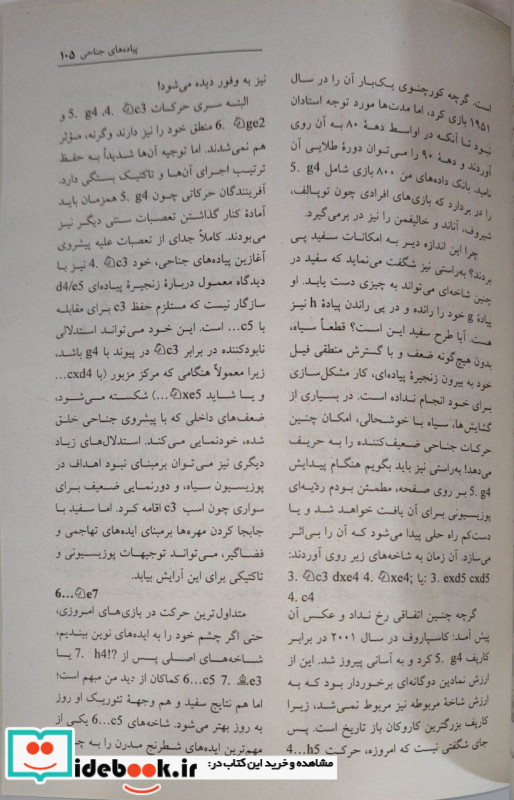 پیاده‌های جناحی ۱۰۵
است. گرچه کورچنوی یک‌بار آن را در سال
۱۹۵۱ بازی کرد، اما مدت‌ها مورد توجه استادان
نبود تا آنکه در اواسط دههٔ ۸۰ به آن روی
آوردند و دههٔ ۹۰ را می‌توان دورهٔ طلایی آن
نامید. بانک داده‌های من ۸۰۰ بازی شامل 5. g4
را در بردارد که بازی‌های افرادی چون توپالف،
شیروف، آناند و خالیفمن را نیز در برمی‌گیرد.
چرا این اندازه دیر به امکانات سفید پی
بردند؟ به‌راستی نیز شگفت می‌نماید که سفید در
چنین شاخه‌ای می‌تواند به چیزی دست یابد. او
پیادهٔ g خود را رانده و در پی راندن پیادهٔ h نیز
هست. آیا طرح سفید این است؟ قطعاً سیاه،
بدون هیچ‌گونه ضعف و با گسترش منطقی فیل
خود به بیرون زنجیرهٔ پیاده‌ای، کار مشکل‌سازی
برای خود انجام نداده است. در بسیاری از
گشایش‌ها، سیاه با خوشحالی، امکان چنین
حرکات جناحی ضعیف‌کننده را به حریف
می‌دهد! به‌راستی نیز باید بگویم هنگام پیدایش
5. g4 بر روی صفحه، مطمئن بودم ردّیه‌ای
پوزیسیونی برای آن یافت خواهد شد و یا
دست‌کم راه حلی پیدا می‌شود که آن را بی‌اثر
می‌سازد. آن زمان به شاخه‌های زیر روی آوردند:
3. ♘c3 dxe4 4. ♘xe4; یا: 3. exd5 cxd5
4. c4
گرچه چنین اتفاقی رخ نداد و عکس آن
پیش آمد: کاسپاروف در سال ۲۰۰۱ در برابر
کارپف 5. g4 کرد و به آسانی پیروز شد. این از
ارزش نمادین دوگانه‌ای برخوردار بود که به
ارزش شاخهٔ مربوطه نیز مربوط نمی‌شد، زیرا
کارپف بزرگترین کاروکان باز تاریخ است. پس
جای شگفتی نیست که امروزه، حرکت 4...h5
نیز به وفور دیده می‌شود!
البته سری حرکات 4. ♘c3، 5. g4 و
6. ♘ge2 منطق خود را نیز دارند وگرنه، مؤثر
هم نمی‌شدند. اما توجیه آن‌ها شدیداً به حفظ
ترتیب اجرای آن‌ها و تاکتیک بستگی دارد.
آفرینندگان حرکاتی چون 5. g4 همزمان باید
آمادهٔ کنار گذاشتن تعصبات سنتی دیگر نیز
می‌بودند. کاملاً جدای از تعصبات علیه پیشروی
آغازین پیاده‌های جناحی، خود 4. ♘c3 نیز با
دیدگاه معمول دربارهٔ زنجیرهٔ پیاده‌ای d4/e5
سازگار نیست که مستلزم حفظ c3 برای مقابله
با c5... است. این خود می‌تواند استدلالی
نابودکننده در برابر ♘c3 در پیوند با g4 باشد،
زیرا معمولاً هنگامی که مرکز مزبور (با cxd4...
و یا شاید ♘xe5...) شکسته می‌شود،
ضعف‌های داخلی که با پیشروی جناحی خلق
شده، خودنمایی می‌کند. استدلال‌های زیاد
دیگری نیز می‌توان برمبنای نبود اهداف در
پوزیسیون سیاه، و دورنمایی ضعیف برای
سواری چون اسب c3 اقامه کرد. اما سفید با
جابجا کردن مهره‌ها برمبنای ایده‌های تهاجمی و
فضاگیر، می‌تواند توجیهات پوزیسیونی و
تاکتیکی برای این آرایش بیابد.
6...♘e7
متداول‌ترین حرکت در بازی‌های امروزی،
حتی اگر چشم خود را به ایده‌های نوین ببندیم،
شاخه‌های اصلی پس از 7. h4!? یا
6...c5 7. ♗e3 کماکان از دید من مبهم است؛
اما هم نتایج سفید و هم وجههٔ تئوریک او روز
به روز بهتر می‌شود. شاخه‌های 6...c5 یکی از
مهم‌ترین ایده‌های شطرنج مدرن را به
مشاهده و خرید این کتاب در:
idebook.ir